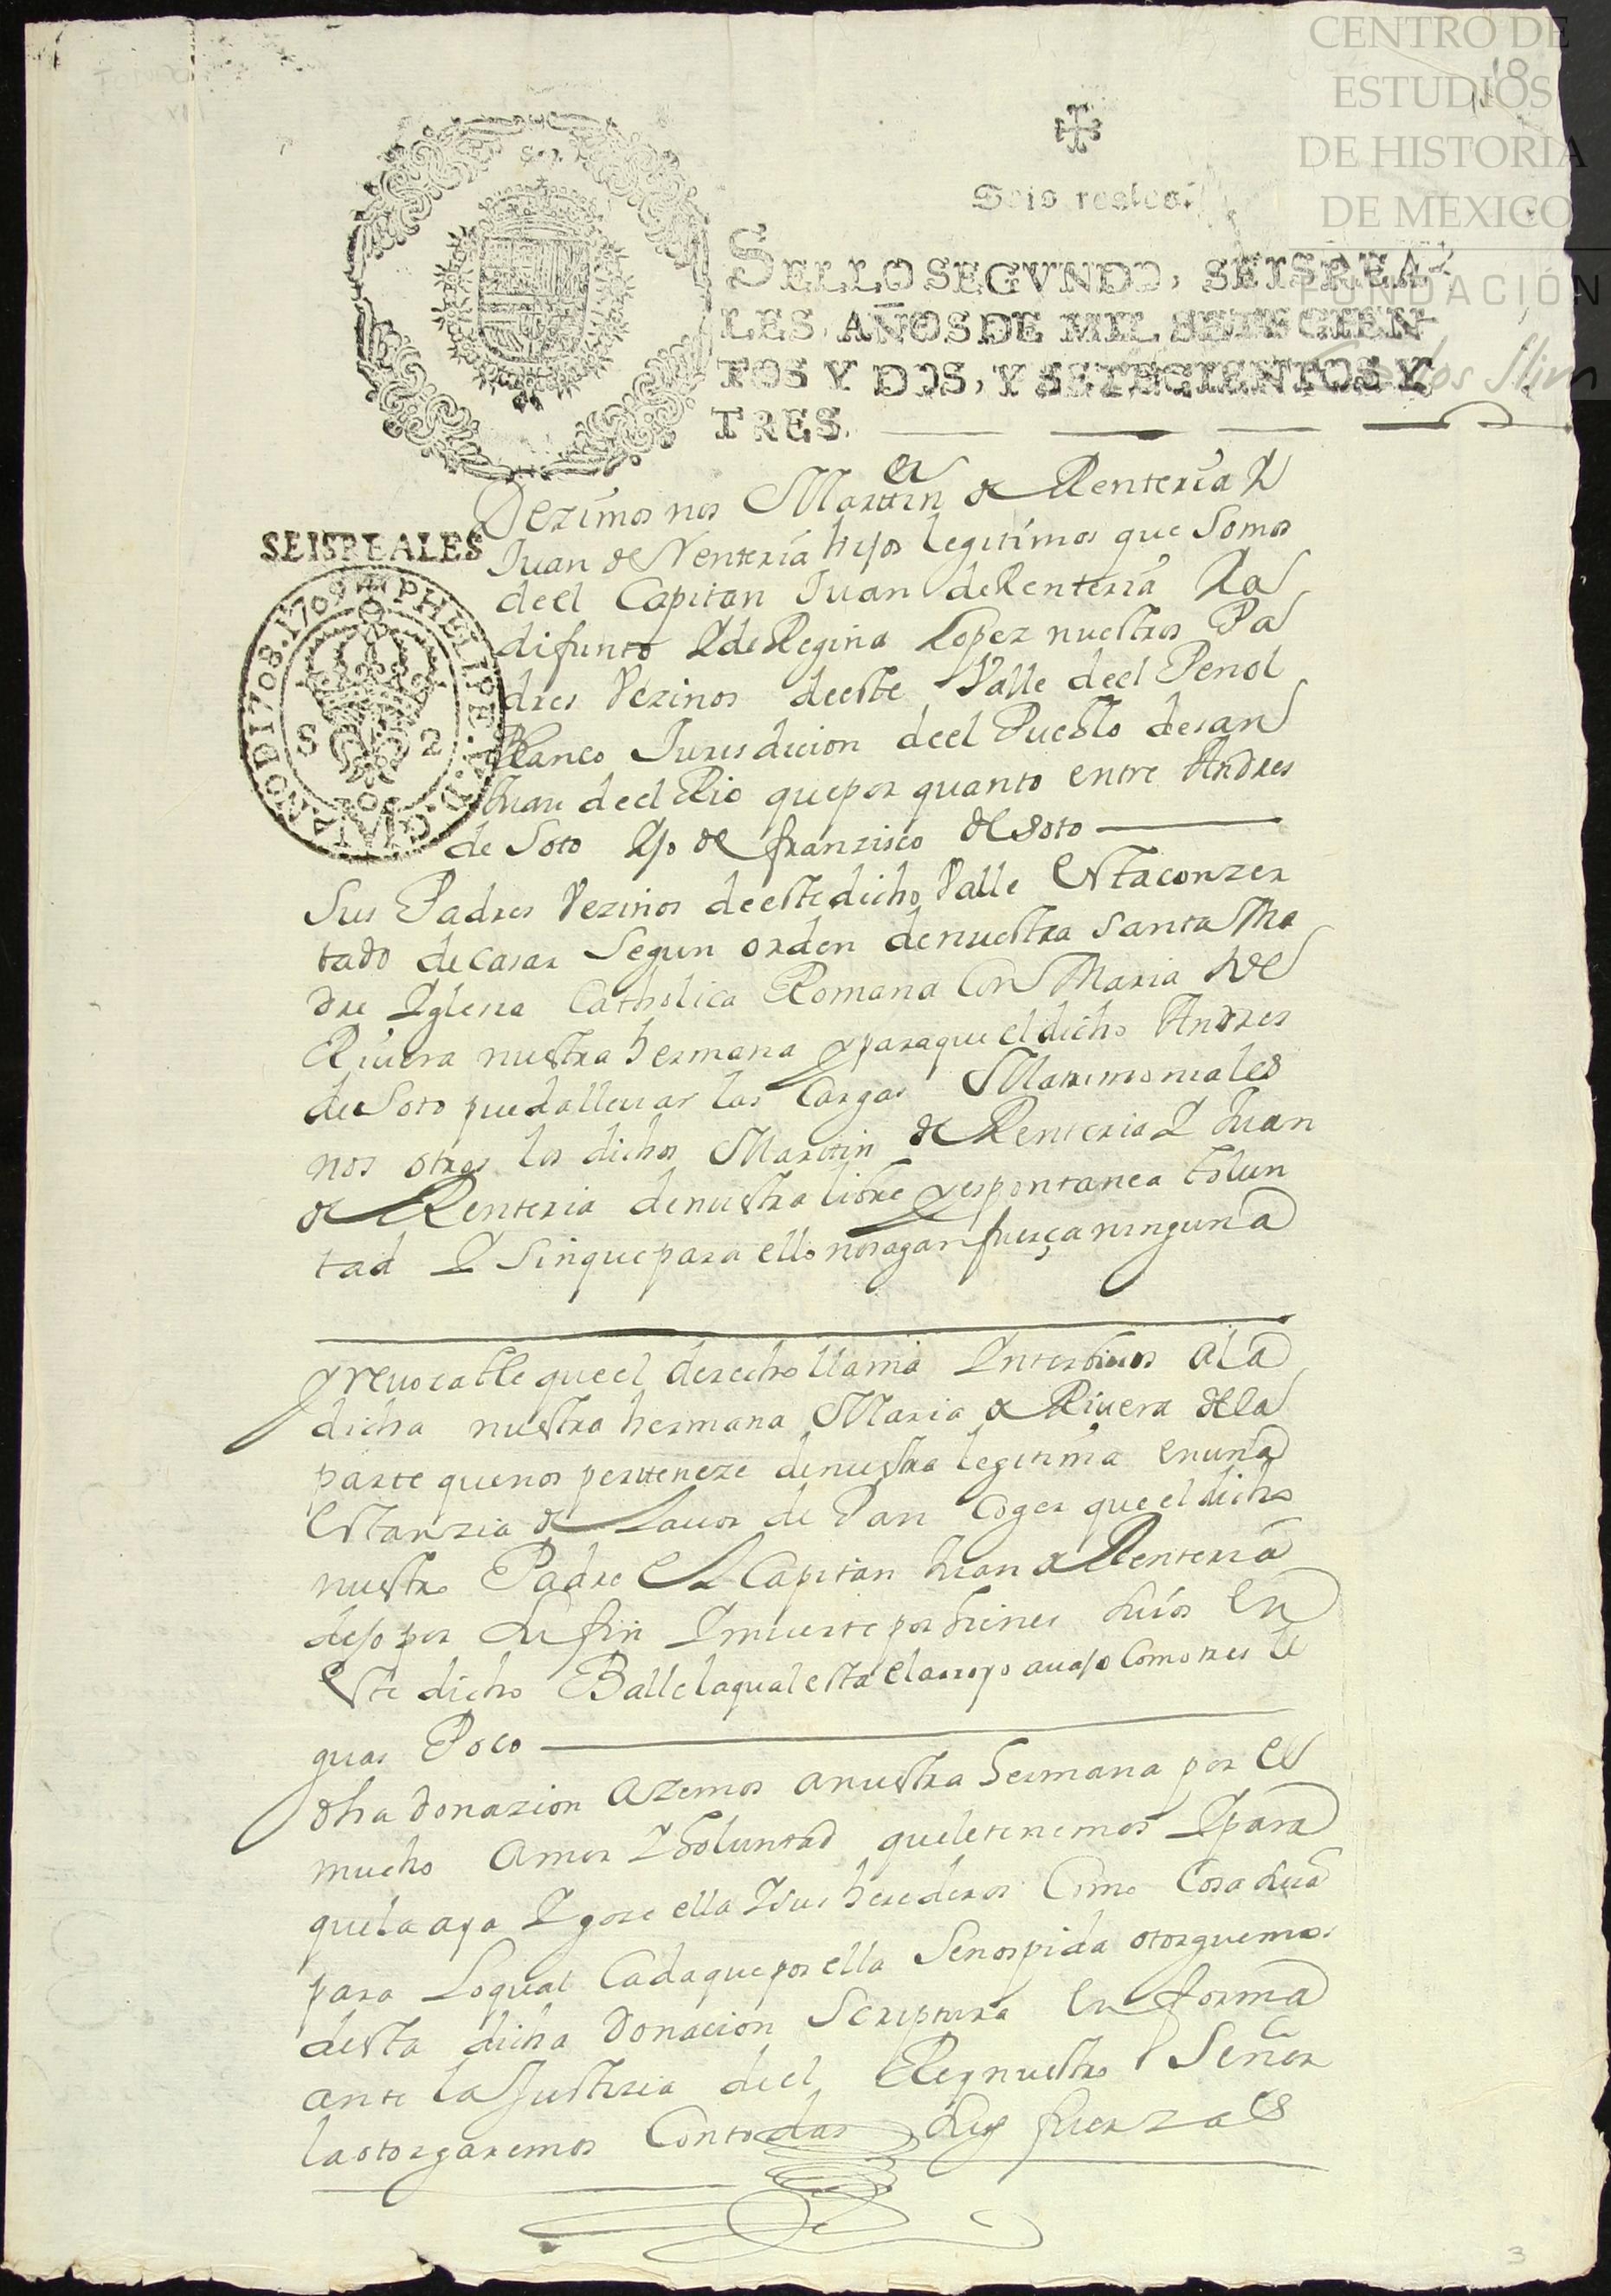 CENTRO DE
ESTUDIOS
DE HISTORIA
DE MEXICO
FUNDACIÓN
Carlos Slim
18
Seis reales.
SELLO SEGVNDO, SEIS REA-
LES, AÑOS DE MIL SETECIEN-
TOS Y DOS, Y SETECIENTOS Y
TRES.
SEIS REALES
PHELIPE.V.D.G. ANO D 1708.1709
S 2
Dezimos nos Marttin de Renteria Y
Juan de Renteria hijos legitimos que Somos
deel Capitan Juan de Renteria Ya
difunto Y de Regina Lopez nuestros Pa
dres Vezinos deeste Valle deel Penol
Blanco Jurisdicion deel Pueblo de san
Juan deel Rio que por quanto entre Andres
de Soto Yjo de franzisco de Soto
Sus Padres Vezinos deeste dicho Valle Esta conzer
tado de casar Segun orden de nuestra Santa Ma
dre Yglesia Catholica Romana Con Maria de
Rivera nuestra hermana y para que el dicho Andres
de Soto pueda llevar las Cargas Matrimoniales
nos otros los dichos Marttin de Renteria Y Juan
de Renteria de nuestra libre y espontanea bolun
tad Y Sin que para ello nos agan fuerça ninguna
yrevocable que el derecho llama Ynterbivos a la
dicha nuestra hermana Maria de Rivera de la
parte que nos perteneze de nuestra legitima en una
Estanzia de Lavor de Pan Coger que el dicho
nuestro Padre El Capitan Juan de Renteria
dejo por Su fin Y muerte por bienes Suios En
Este dicho Balle la qual esta el arroyo avajo Como tres le
guas Poco
dha donazion azemos a nuestra hermana por el
mucho Amor Y boluntad que le tenemos Y para
que la aya Y goze ella Y sus herederos Como Cosa Sua
para Loqual Cada que por ella Se nos pida otorguemos
desta dicha Donacion Scriptura En forma
ante la Justizia deel Rey nuestro Señor
la otorgaremos Con todas Sus fuerzas
3